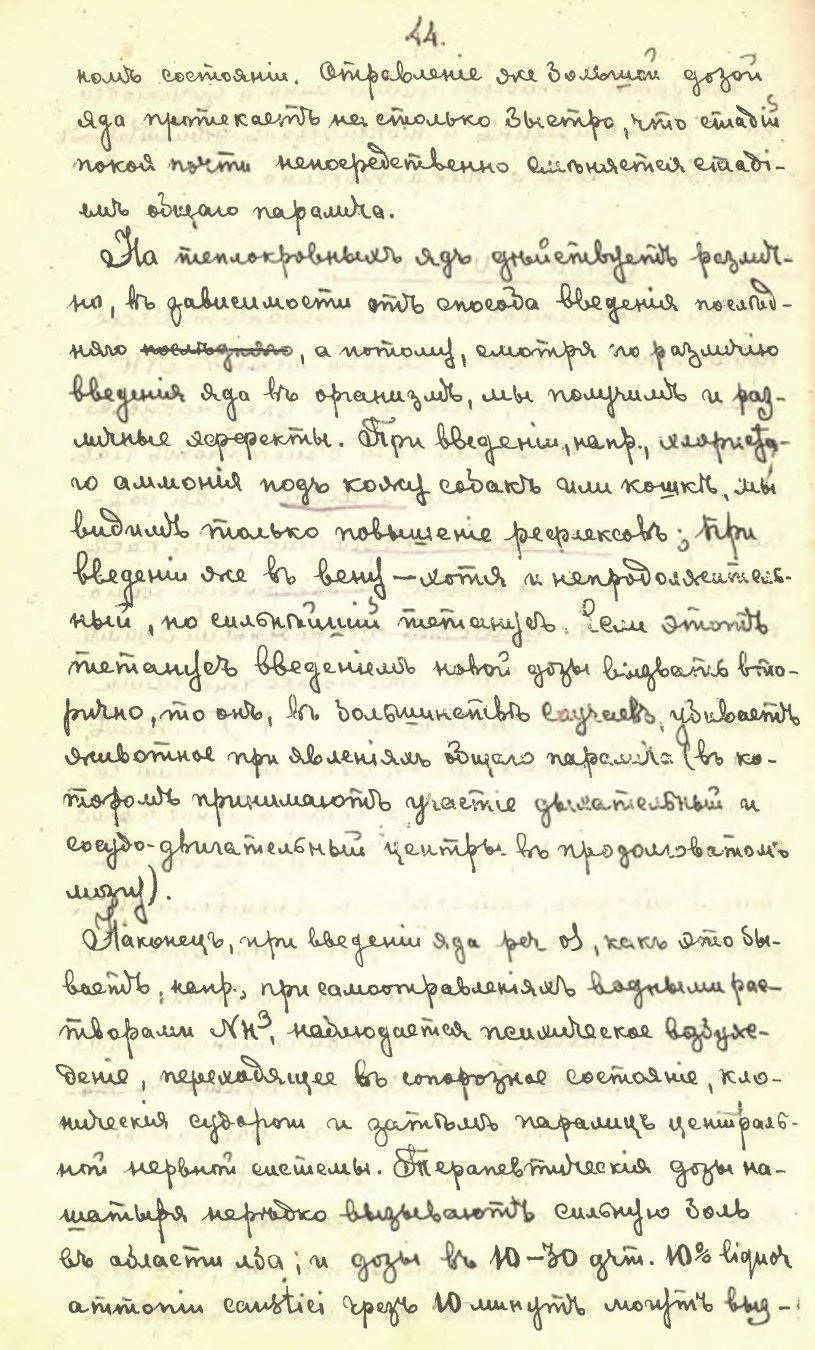 44.
номъ состоянiи. Отравленiе же большой дозой
яда протекаетъ на столько быстро, что стадiй
покоя почти непосредственно смѣняется стадi-
емъ общаго паралича.
На теплокровныхъ ядъ дѣйствуетъ различ-
но, въ зависимости отъ способа введенiя послѣд-
няго послѣдняго, а потому, смотря по различiю
введенiя яда въ организмъ, мы получимъ и раз-
личные эффекты. При введенiи, напр., хлориста-
го аммонiя подъ кожу собакѣ или кошкѣ, мы
видимъ только повышенiе рефлексовъ; при
введенiи же въ вену — хотя и непродолжитель-
ный, но сильнѣйшiй тетанусъ. Если этотъ
тетанусъ введенiемъ новой дозы вызвать вто-
рично, то онъ, въ большинствѣ случаевъ, убиваетъ
животное при явленiяхъ общаго паралича (въ ко-
торомъ принимаютъ участiе дыхательный и
сосудо-двигательный центры въ продолговатомъ
мозгу).
Наконецъ, при введенiи яда per os, какъ это бы-
ваетъ, напр., при самоотравленiяхъ водными рас-
творами NH³, наблюдается психическое возбуж-
денiе, переходящее въ сопорозное состоянiе, кло-
ническiя судороги и затѣмъ параличъ централь-
ной нервной системы. Терапевтическiя дозы на-
шатыря нерѣдко вызываютъ сильную боль
въ области лба; и дозы въ 10–30 grm. 10% liquor
ammonii caustici чрезъ 10 минутъ могутъ выз-